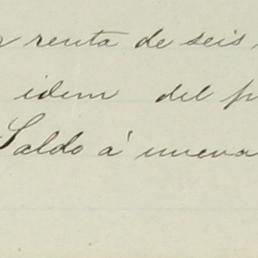 renta de seis
idem del p
Saldo á nueva